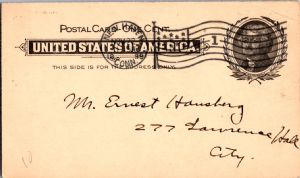 POSTAL CARD - ONE CENT.
UNITED STATES OF AMERICA.
THIS SIDE IS FOR THE ADDRESS ONLY.
CONN
1
Mr. Ernest Hausberg
277 Lawrence Hall
City.